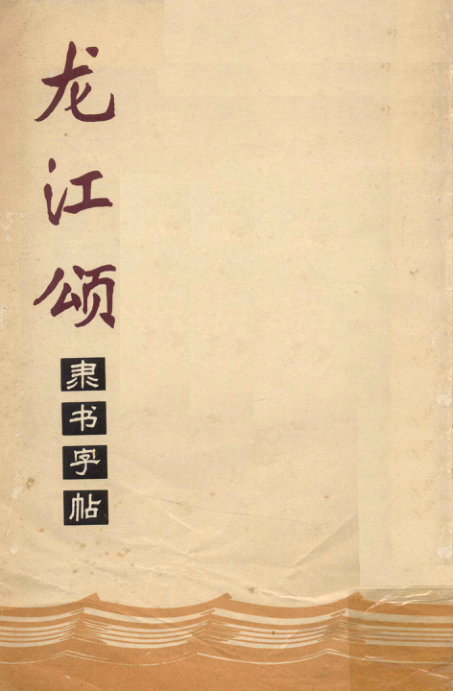 龙江颂
隶书字帖